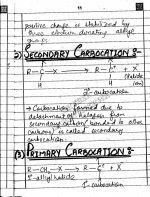 11
positive charge is stabilized by
three electron donating alkyl
groups.
2) SECONDARY CARBOCATION :-
R – C – X → R – C + X
H H (halide
ion)
2°-carbocation
→ Carbocation formed due to
detachment of halogen from
secondary carbon (bonded to other
carbons) is called secondary
carbocation.
(3) PRIMARY CARBOCATION :-
R – CH₂ – X → R – C + X
1°-alkyl halide
1°-carbocation